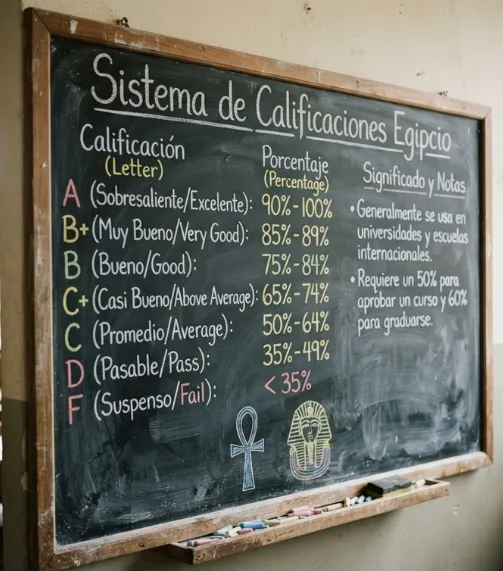 Sistema de Calificaciones Egipcio
Calificación
(Letter)
Porcentaje
(Percentage)
A (Sobresaliente/Excelente): 90%-100%
B+ (Muy Bueno/Very Good): 85%-89%
B (Bueno/Good): 75%-84%
C+ (Casi Bueno/Above Average): 65%-74%
C (Promedio/Average): 50%-64%
D (Pasable/Pass): 35%-49%
F (Suspenso/Fail): < 35%
Significado y Notas
• Generalmente se usa en
universidades y escuelas
internacionales.
• Requiere un 50% para
aprobar un curso y 60%
para graduarse.